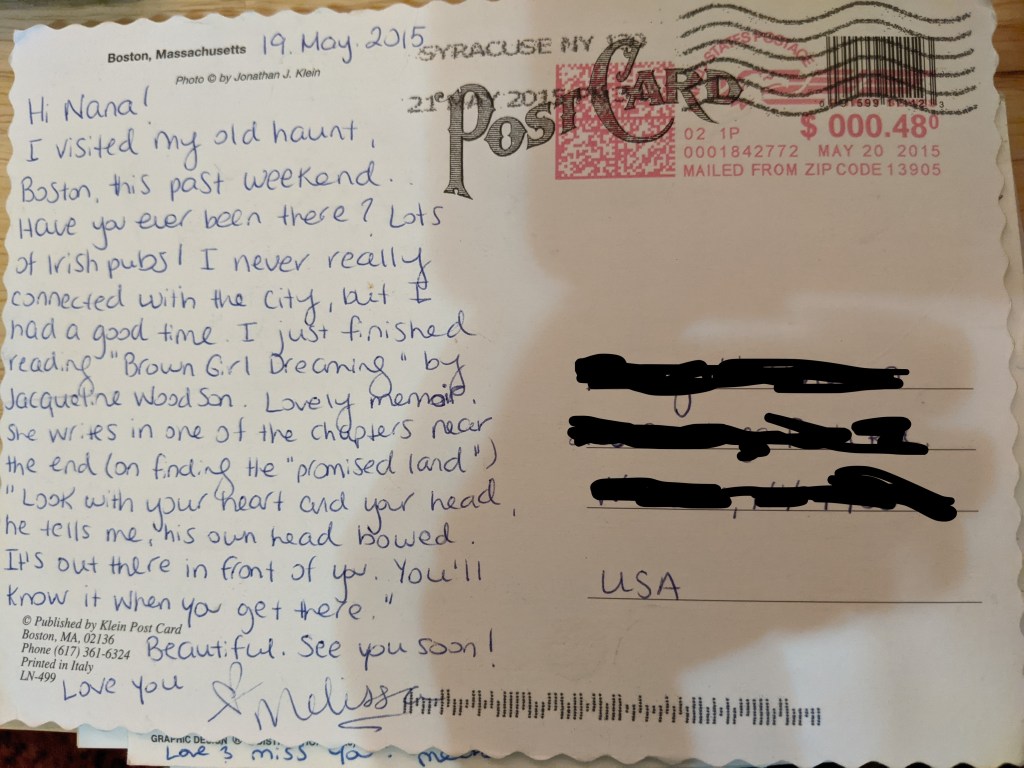 Boston, Massachusetts 19. May. 2015
Photo © by Jonathan J. Klein
Hi Nana!
I visited my old haunt,
Boston, this past weekend.
Have you ever been there? Lots
of Irish pubs! I never really
connected with the city, but I
had a good time. I just finished
reading "Brown Girl Dreaming" by
Jacqueline Woodson. Lovely memoir.
She writes in one of the chapters near
the end (on finding the "promised land")
"Look with your heart and your head,
he tells me, his own head bowed.
It's out there in front of you. You'll
know it when you get there."
Beautiful. See you soon!
Love you
Melissa
© Published by Klein Post Card
Boston, MA, 02136
Phone (617) 361-6324
Printed in Italy
LN-499
SYRACUSE NY
21 MAY 2015
POST CARD
STATES POSTAGE
02 1P
$ 000.48⁰
0001842772 MAY 20 2015
MAILED FROM ZIP CODE 13905
USA
GRAPHIC
Love & miss you.